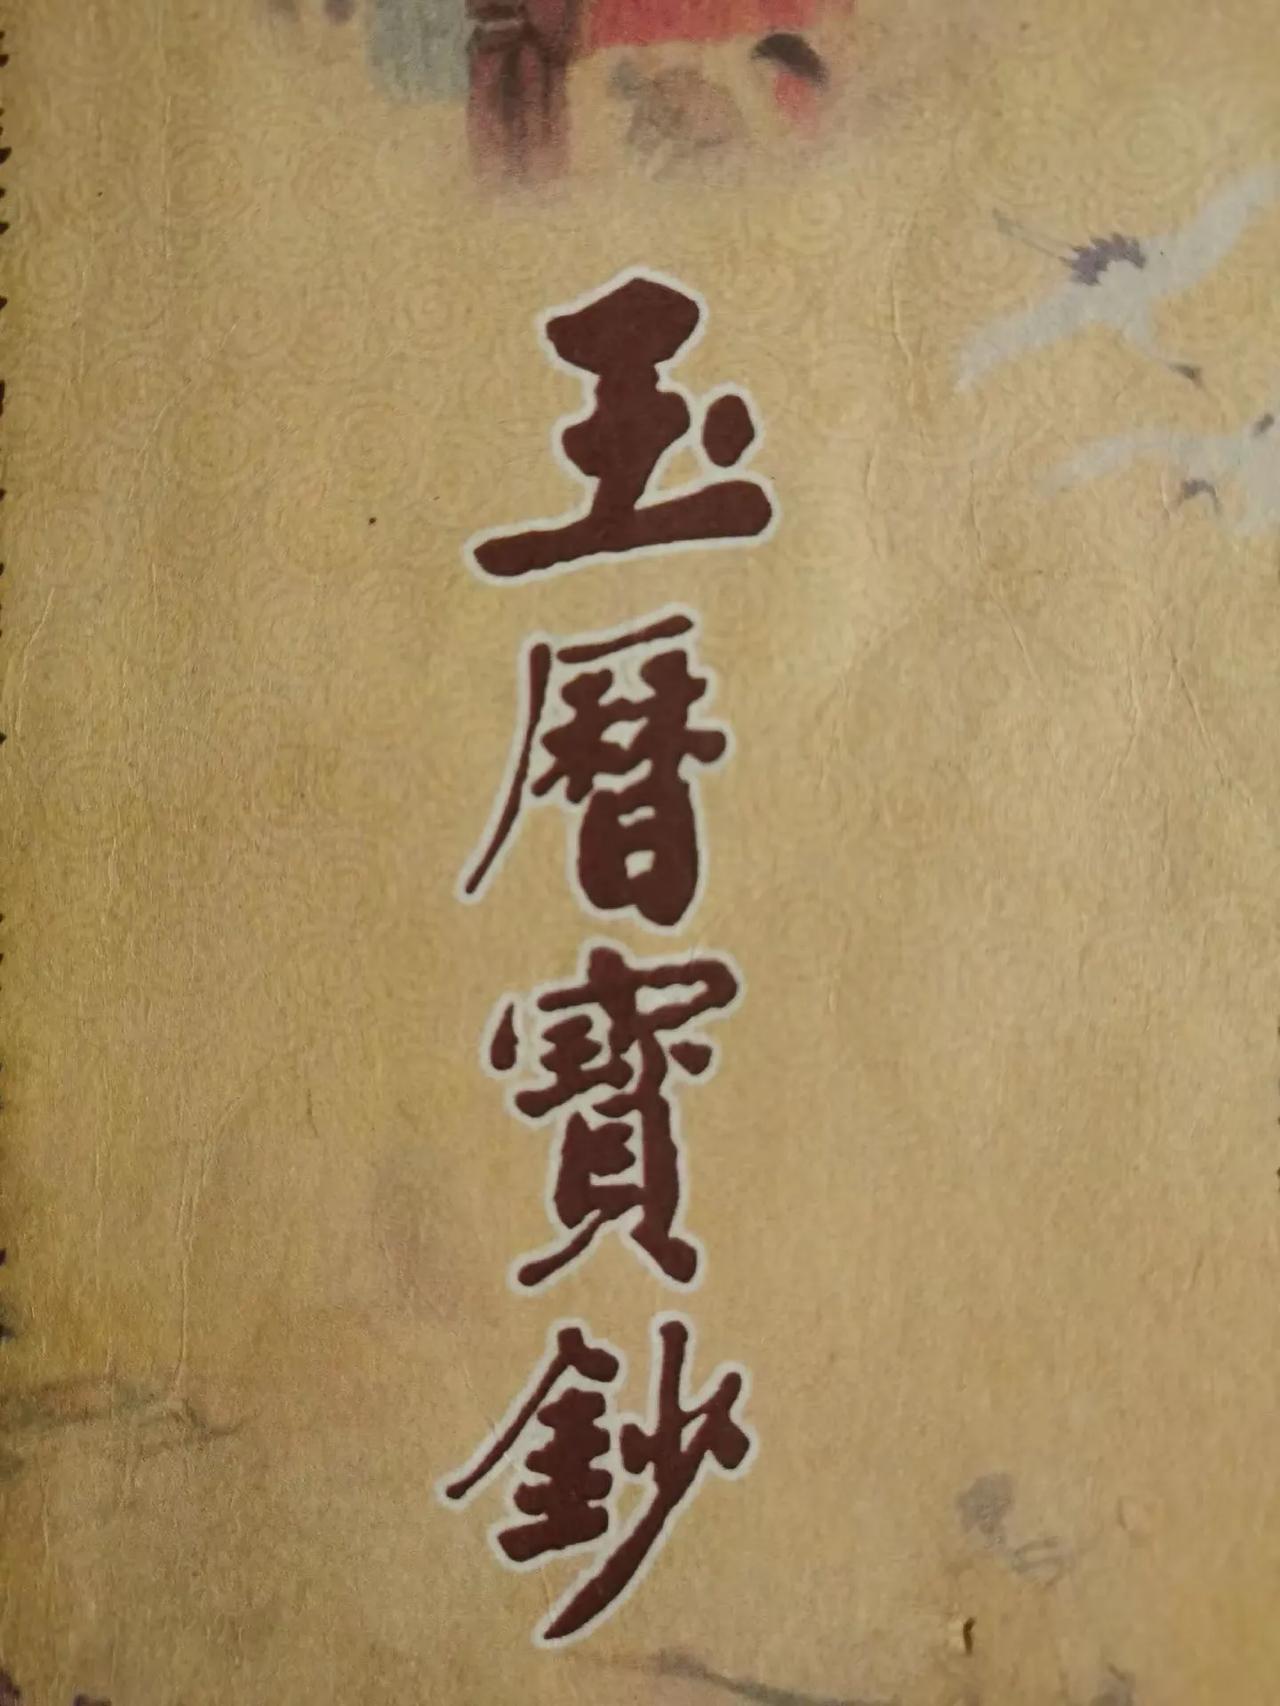 玉曆寶鈔